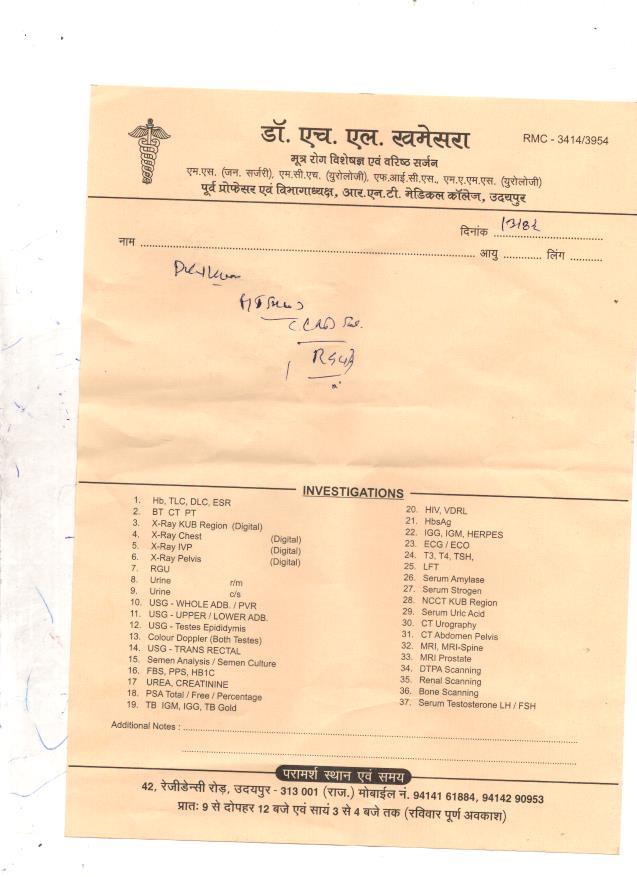 डॉ. एच. एल. खमेसरा
RMC - 3414/3954
मूत्र रोग विशेषज्ञ एवं वरिष्ठ सर्जन
एम.एस. (जन. सर्जरी), एम.सी.एच. (युरोलोजी), एफ.आई.सी.एस., एम.ए.एम.एस. (युरोलोजी)
पूर्व प्रोफेसर एवं विभागाध्यक्ष, आर.एन.टी. मेडिकल कॉलेज, उदयपुर
दिनांक
नाम ........ आयु ........ लिंग ........
INVESTIGATIONS
1. Hb, TLC, DLC, ESR
2. BT CT PT
3. X-Ray KUB Region (Digital)
4. X-Ray Chest (Digital)
5. X-Ray IVP (Digital)
6. X-Ray Pelvis (Digital)
7. RGU
8. Urine r/m
9. Urine c/s
10. USG - WHOLE ADB. / PVR
11. USG - UPPER / LOWER ADB.
12. USG - Testes Epididymis
13. Colour Doppler (Both Testes)
14. USG - TRANS RECTAL
15. Semen Analysis / Semen Culture
16. FBS, PPS, HB1C
17 UREA, CREATININE
18. PSA Total / Free / Percentage
19. TB IGM, IGG, TB Gold
20. HIV, VDRL
21. HbsAg
22. IGG, IGM, HERPES
23. ECG / ECO
24. T3, T4, TSH,
25. LFT
26. Serum Amylase
27. Serum Strogen
28. NCCT KUB Region
29. Serum Uric Acid
30. CT Urography
31. CT Abdomen Pelvis
32. MRI, MRI-Spine
33. MRI Prostate
34. DTPA Scanning
35. Renal Scanning
36. Bone Scanning
37. Serum Testosterone LH / FSH
Additional Notes :
परामर्श स्थान एवं समय
42, रेजीडेन्सी रोड़, उदयपुर - 313 001 (राज.) मोबाईल नं. 94141 61884, 94142 90953
प्रातः 9 से दोपहर 12 बजे एवं सायं 3 से 4 बजे तक (रविवार पूर्ण अवकाश)